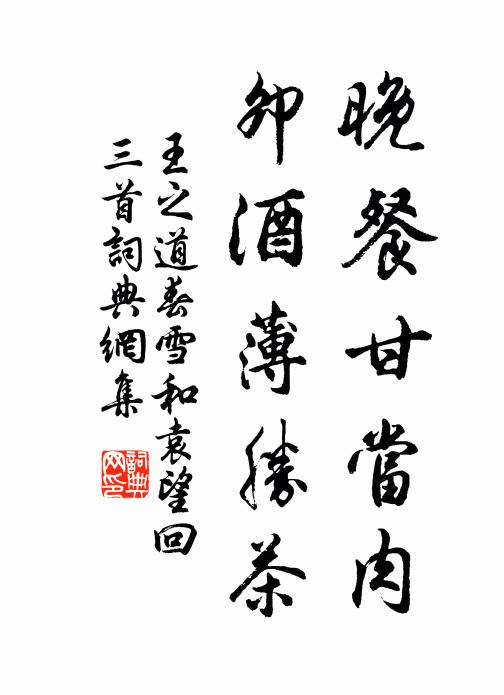 晚餐甘當肉
卯酒薄勝茶
王之道春雪和袁望回
三首詞典網集
詞典
网印